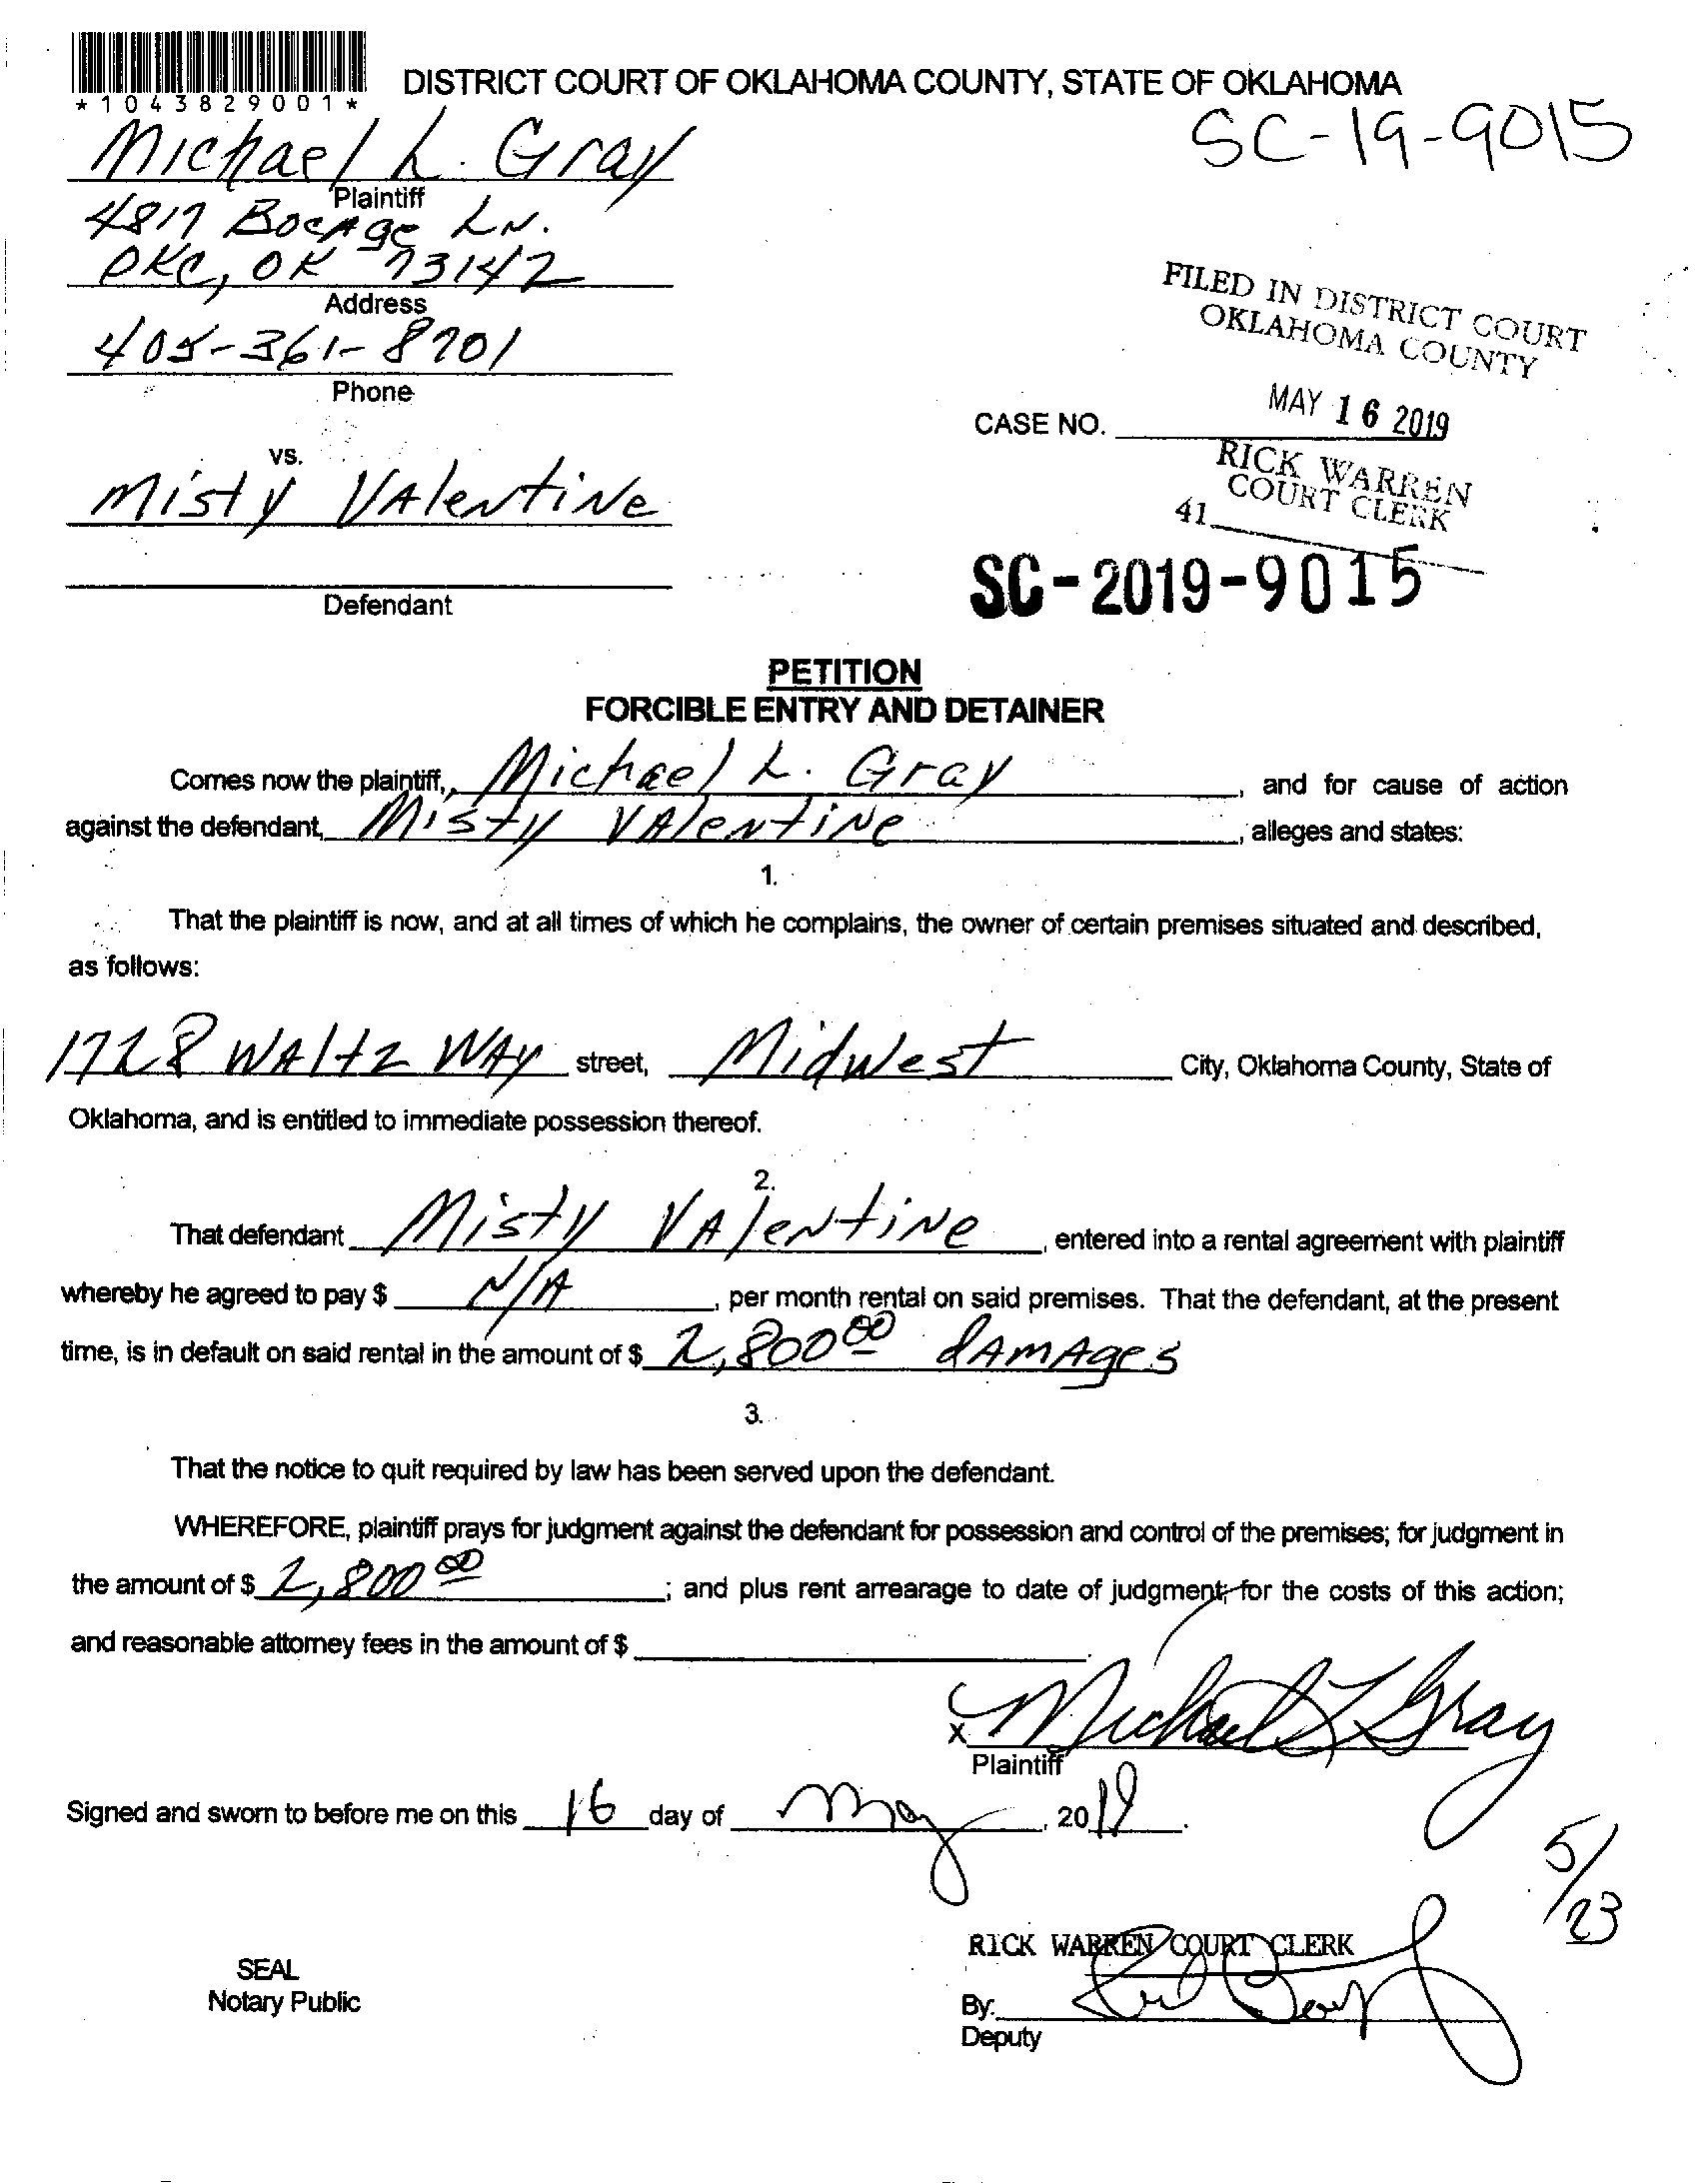 *1043829001*
DISTRICT COURT OF OKLAHOMA COUNTY, STATE OF OKLAHOMA
SC-19-9015
Michael L. Gray
Plaintiff
4817 Bocage Ln.
OKC, OK 73142
Address
405-361-8701
Phone
FILED IN DISTRICT COURT
OKLAHOMA COUNTY
MAY 16 2019
CASE NO.
RICK WARREN
COURT CLERK
41
vs.
Misty Valentine
SC-2019-9015
Defendant
PETITION
FORCIBLE ENTRY AND DETAINER
Comes now the plaintiff, Michael L. Gray, and for cause of action
against the defendant, Misty Valentine, alleges and states:
1.
That the plaintiff is now, and at all times of which he complains, the owner of certain premises situated and described,
as follows:
1728 Waltz Way street, Midwest City, Oklahoma County, State of
Oklahoma, and is entitled to immediate possession thereof.
2.
That defendant Misty Valentine, entered into a rental agreement with plaintiff
whereby he agreed to pay $ N/A, per month rental on said premises. That the defendant, at the present
time, is in default on said rental in the amount of $ 2,800.00 damages
3.
That the notice to quit required by law has been served upon the defendant.
WHEREFORE, plaintiff prays for judgment against the defendant for possession and control of the premises; for judgment in
the amount of $ 2,800.00; and plus rent arrearage to date of judgment; for the costs of this action;
and reasonable attorney fees in the amount of $
X Michael L Gray
Plaintiff
Signed and sworn to before me on this 16 day of May, 2019.
5/23
RICK WARREN COURT CLERK
SEAL
Notary Public
By:
Deputy